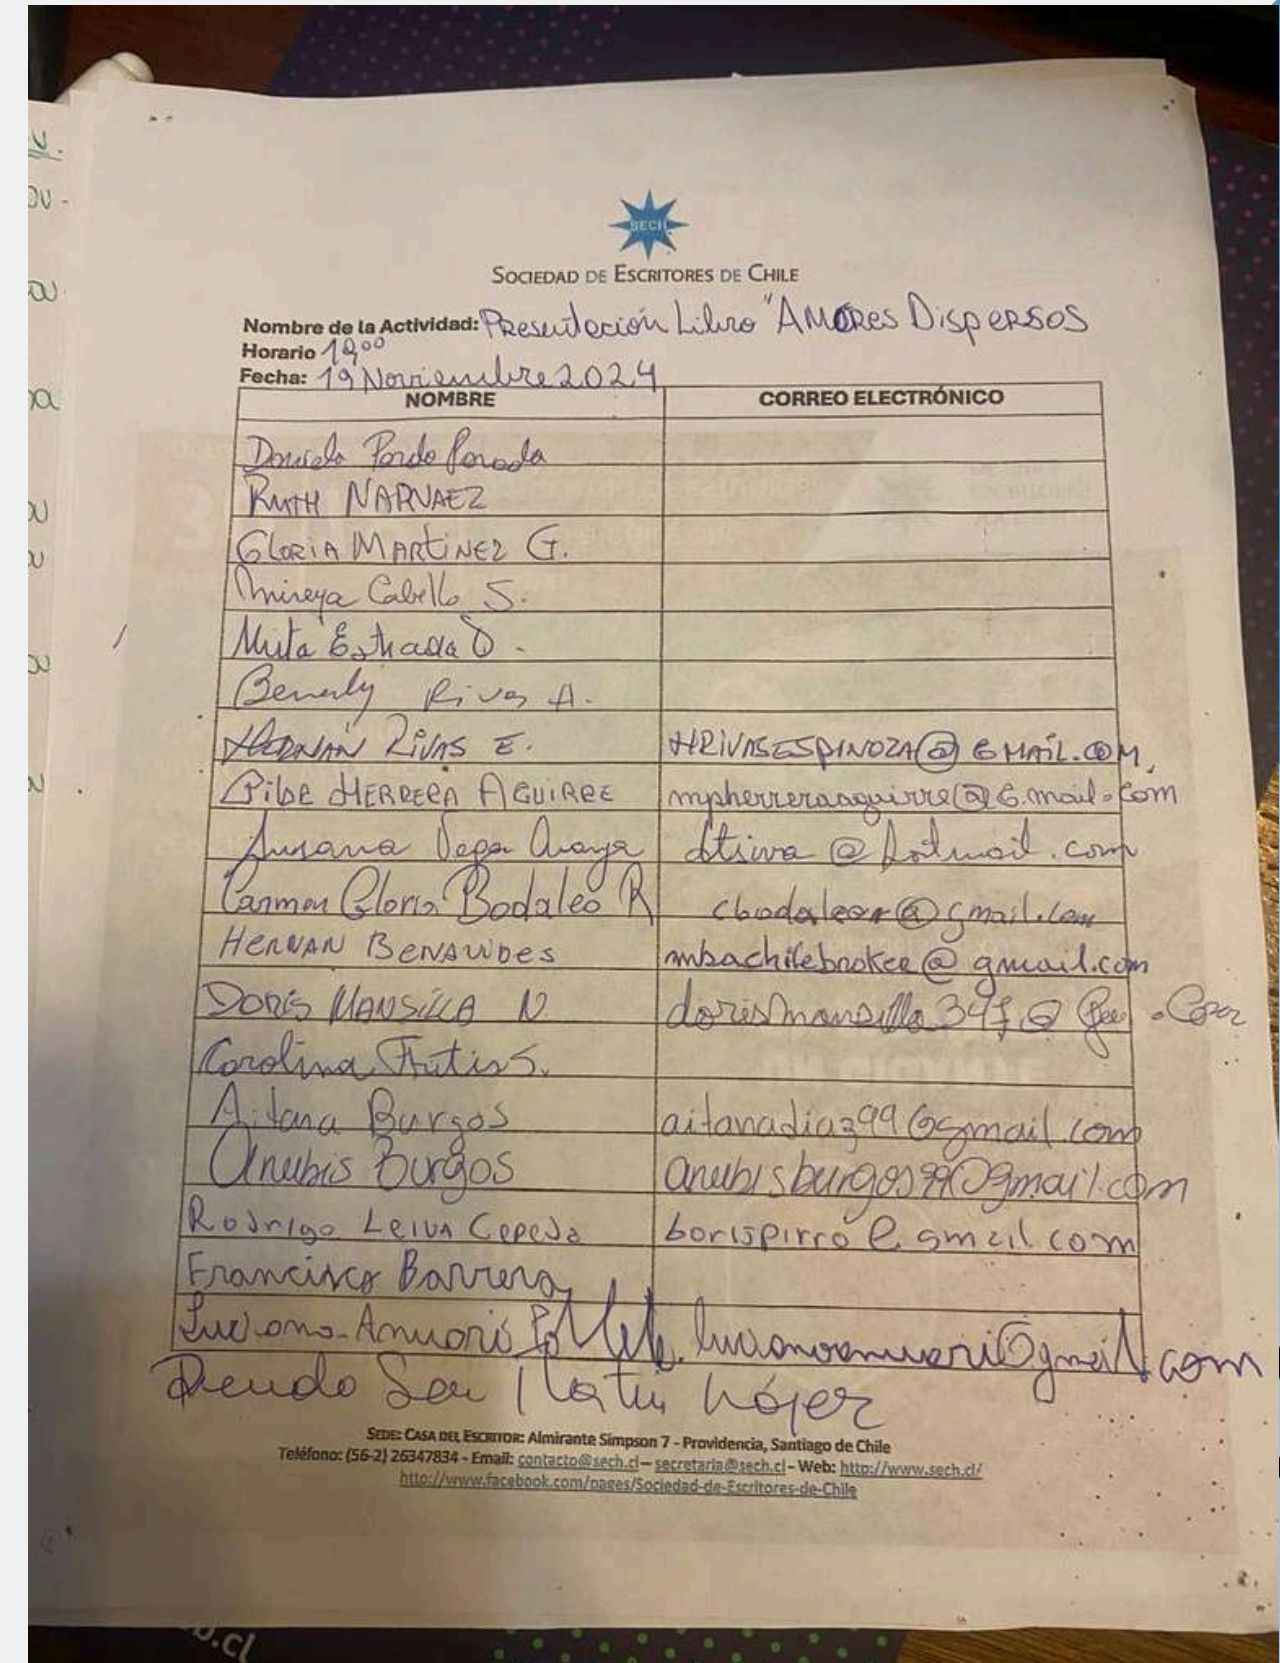 SECH
SOCIEDAD DE ESCRITORES DE CHILE
Nombre de la Actividad: Presentación Libro "AMORES DISPERSOS
Horario 19⁰⁰
Fecha: 19 Noviembre 2024
NOMBRE CORREO ELECTRÓNICO
Daniela Pardo
RUTH NARVAEZ
GLORIA MARTINEZ G.
Mireya Cabello S.
Mirta Estrada
Beverly Rivas A.
HERNÁN RIVAS E. HRIVASESPINOZA@GMAIL.COM
HERRERA AGUIRRE mpherreraaguirre@G.mail.com
Susana Vega Araya @hotmail.com
Carmen Gloria Bodaleo R cbodaleor@gmail.com
HERNAN BENAVIDES mbachilebroker@gmail.com
DORIS MANSILLA N.
Carolina
Aitana Burgos aitanadiaz99@gmail.com
Anubis Burgos anubisburgos99@gmail.com
Rodrigo Leiva Cepeda borispirro@gmail.com
Francisco Barrera
Luciano Anuari lucianoanuari@gmail.com
SEDE: CASA DEL ESCRITOR: Almirante Simpson 7 - Providencia, Santiago de Chile
Teléfono: (56-2) 26347834 - Email: contacto@sech.cl – secretaria@sech.cl - Web: http://www.sech.cl/
http://www.facebook.com/pages/Sociedad-de-Escritores-de-Chile